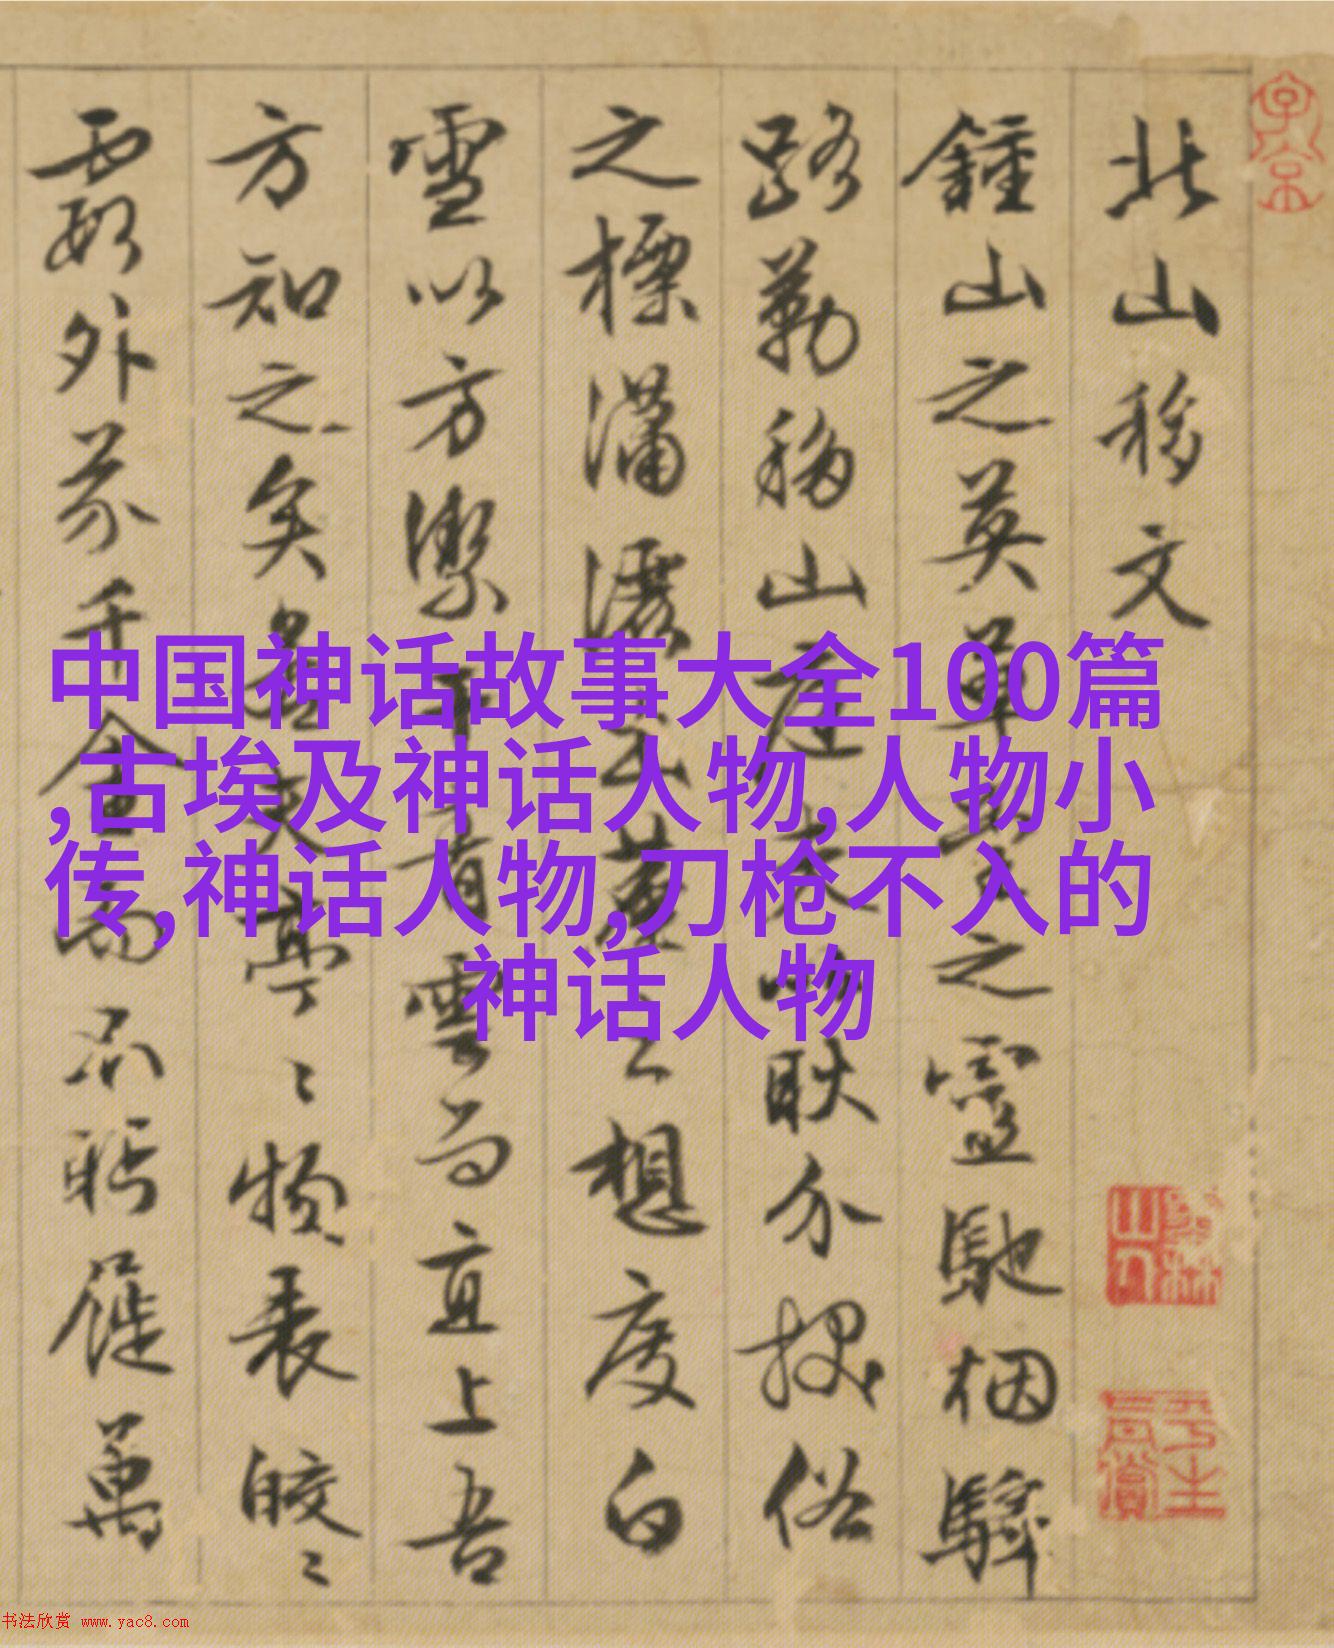 子京
北山移文
墨林山人
平生真賞
鍾山之英草堂之靈馳烟驛
路勒移山庭夫以耿介拔俗
之標瀟灑出塵之想度白
雪以方潔干青雲而直上吾
方知之矣若其亭〻物表皎〻
霞外芥千金而不眄屣萬
中国神话故事大全100篇
,古埃及神话人物,人物小
传,神话人物,刀枪不入的
神话人物
书法欣赏 www.yac8.com